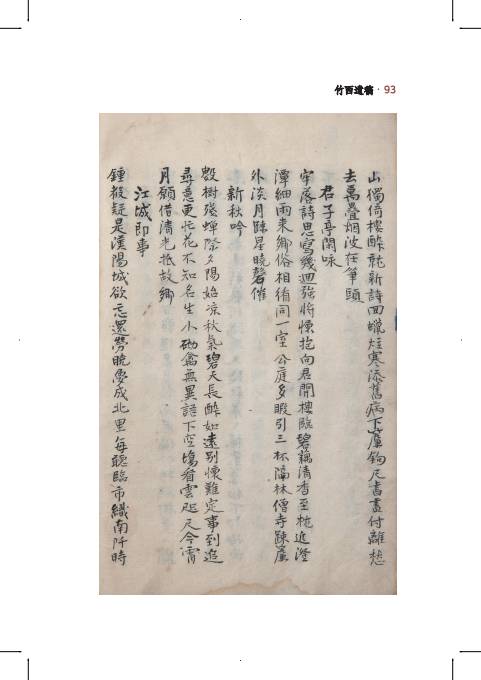 竹西遺稿 · 93
山獨倚樓醉就新詩回蠟炷寒添舊病下簾鉤尺書盡付離愁
去萬疊烟波在筆頭
君子亭閑咏
寥落詩思寫幾迴強將懷抱向君開樓臨碧藕清香至枕近澄
潭細雨來鄉俗相循同一室公庭多暇引三杯隔林僧寺踈簾
外淡月踈星曉磬催
新秋吟
數樹殘蟬際夕陽始凉秋氣碧天長醉如遠別懷難定事到追
尋意更忙花不知名生小砌禽無異語下空場看雲咫尺今宵
月願借清光抵故鄉
江城即事
鍾殘疑是漢陽城欲忘還勞曉夢成北里每聽臨市織南阡時